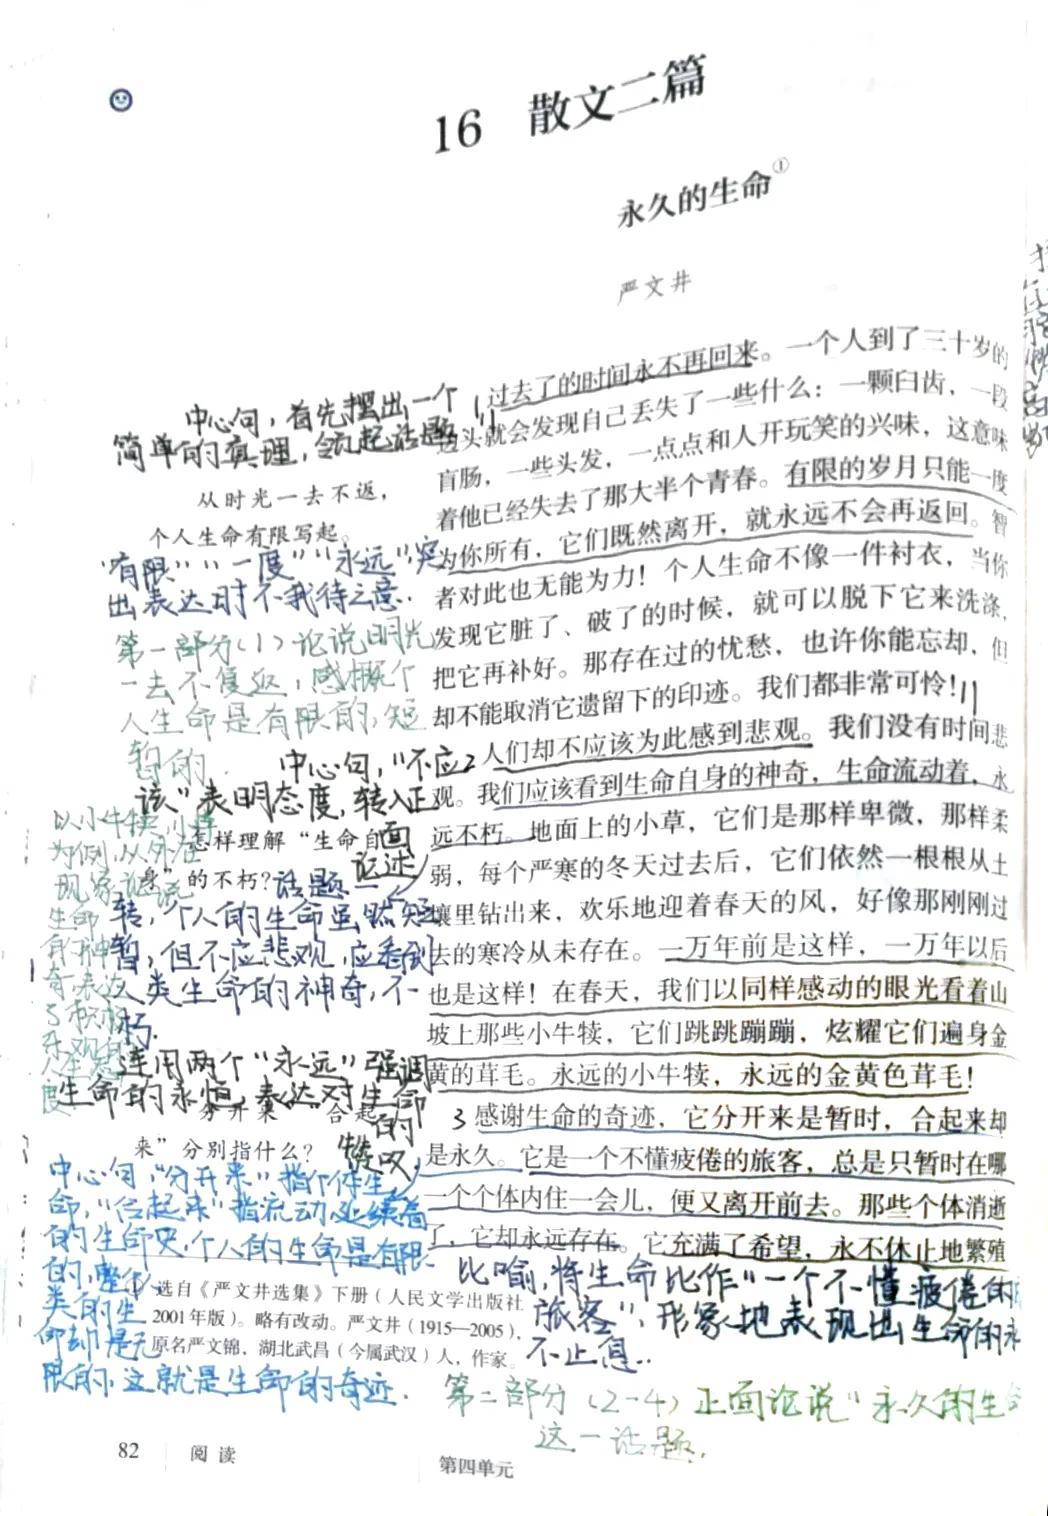 16 散文二篇
永久的生命①
严文井
过去了的时间永不再回来。一个人到了三十岁的
边头就会发现自己丢失了一些什么：一颗臼齿，一段
盲肠，一些头发，一点点和人开玩笑的兴味，这意味
着他已经失去了那大半个青春。有限的岁月只能一度
为你所有，它们既然离开，就永远不会再返回。智
者对此也无能为力！个人生命不像一件衬衣，当你
发现它脏了、破了的时候，就可以脱下它来洗涤，
把它再补好。那存在过的忧愁，也许你能忘却，但
却不能取消它遗留下的印迹。我们都非常可怜！
2 人们却不应该为此感到悲观。我们没有时间悲
观。我们应该看到生命自身的神奇，生命流动着，永
远不朽。地面上的小草，它们是那样卑微，那样柔
弱，每个严寒的冬天过去后，它们依然一根根从土
壤里钻出来，欢乐地迎着春天的风，好像那刚刚过
去的寒冷从未存在。一万年前是这样，一万年以后
也是这样！在春天，我们以同样感动的眼光看着山
坡上那些小牛犊，它们跳跳蹦蹦，炫耀它们遍身金
黄的茸毛。永远的小牛犊，永远的金黄色茸毛！
3 感谢生命的奇迹，它分开来是暂时，合起来却
是永久。它是一个不懂疲倦的旅客，总是只暂时在哪
一个个体内住一会儿，便又离开前去。那些个体消逝
了，它却永远存在。它充满了希望，永不休止地繁殖
中心句，首先摆出一个
简单的真理，领起话题
从时光一去不返，
个人生命有限写起。
"有限""一度""永远"突
出表达时不我待之意.
第一部分(1)论说时光
一去不复返，感慨个
人生命是有限的，短
暂的.
中心句，"不应
该"表明态度，转入正
面
论述
怎样理解"生命自
身"的不朽？
话题一
转，个人的生命虽然短
暂，但不应悲观，应看到
人类生命的神奇，不
朽.
以小牛犊，小草
为例，从外在
现象论说
生命
自身神
奇，表达
了积极
乐观的
人生态
度
连用两个"永远"强调
生命的永恒，表达对生命
的
赞叹
"分开来""合起
来"分别指什么？
中心句，"分开来"指个体生
命，"合起来"指流动延续着
的生命史，个人的生命是有限
的，整个人
类的生
命却是无
限的，这就是生命的奇迹.
比喻，将生命比作"一个不懂疲倦的
旅客"，形象地表现出生命的永
不止息.
第二部分（2-4）正面论说"永久的生命
这一话题.
① 选自《严文井选集》下册（人民文学出版社
2001年版）。略有改动。严文井（1915—2005），
原名严文锦，湖北武昌（今属武汉）人，作家。
82 阅读
第四单元